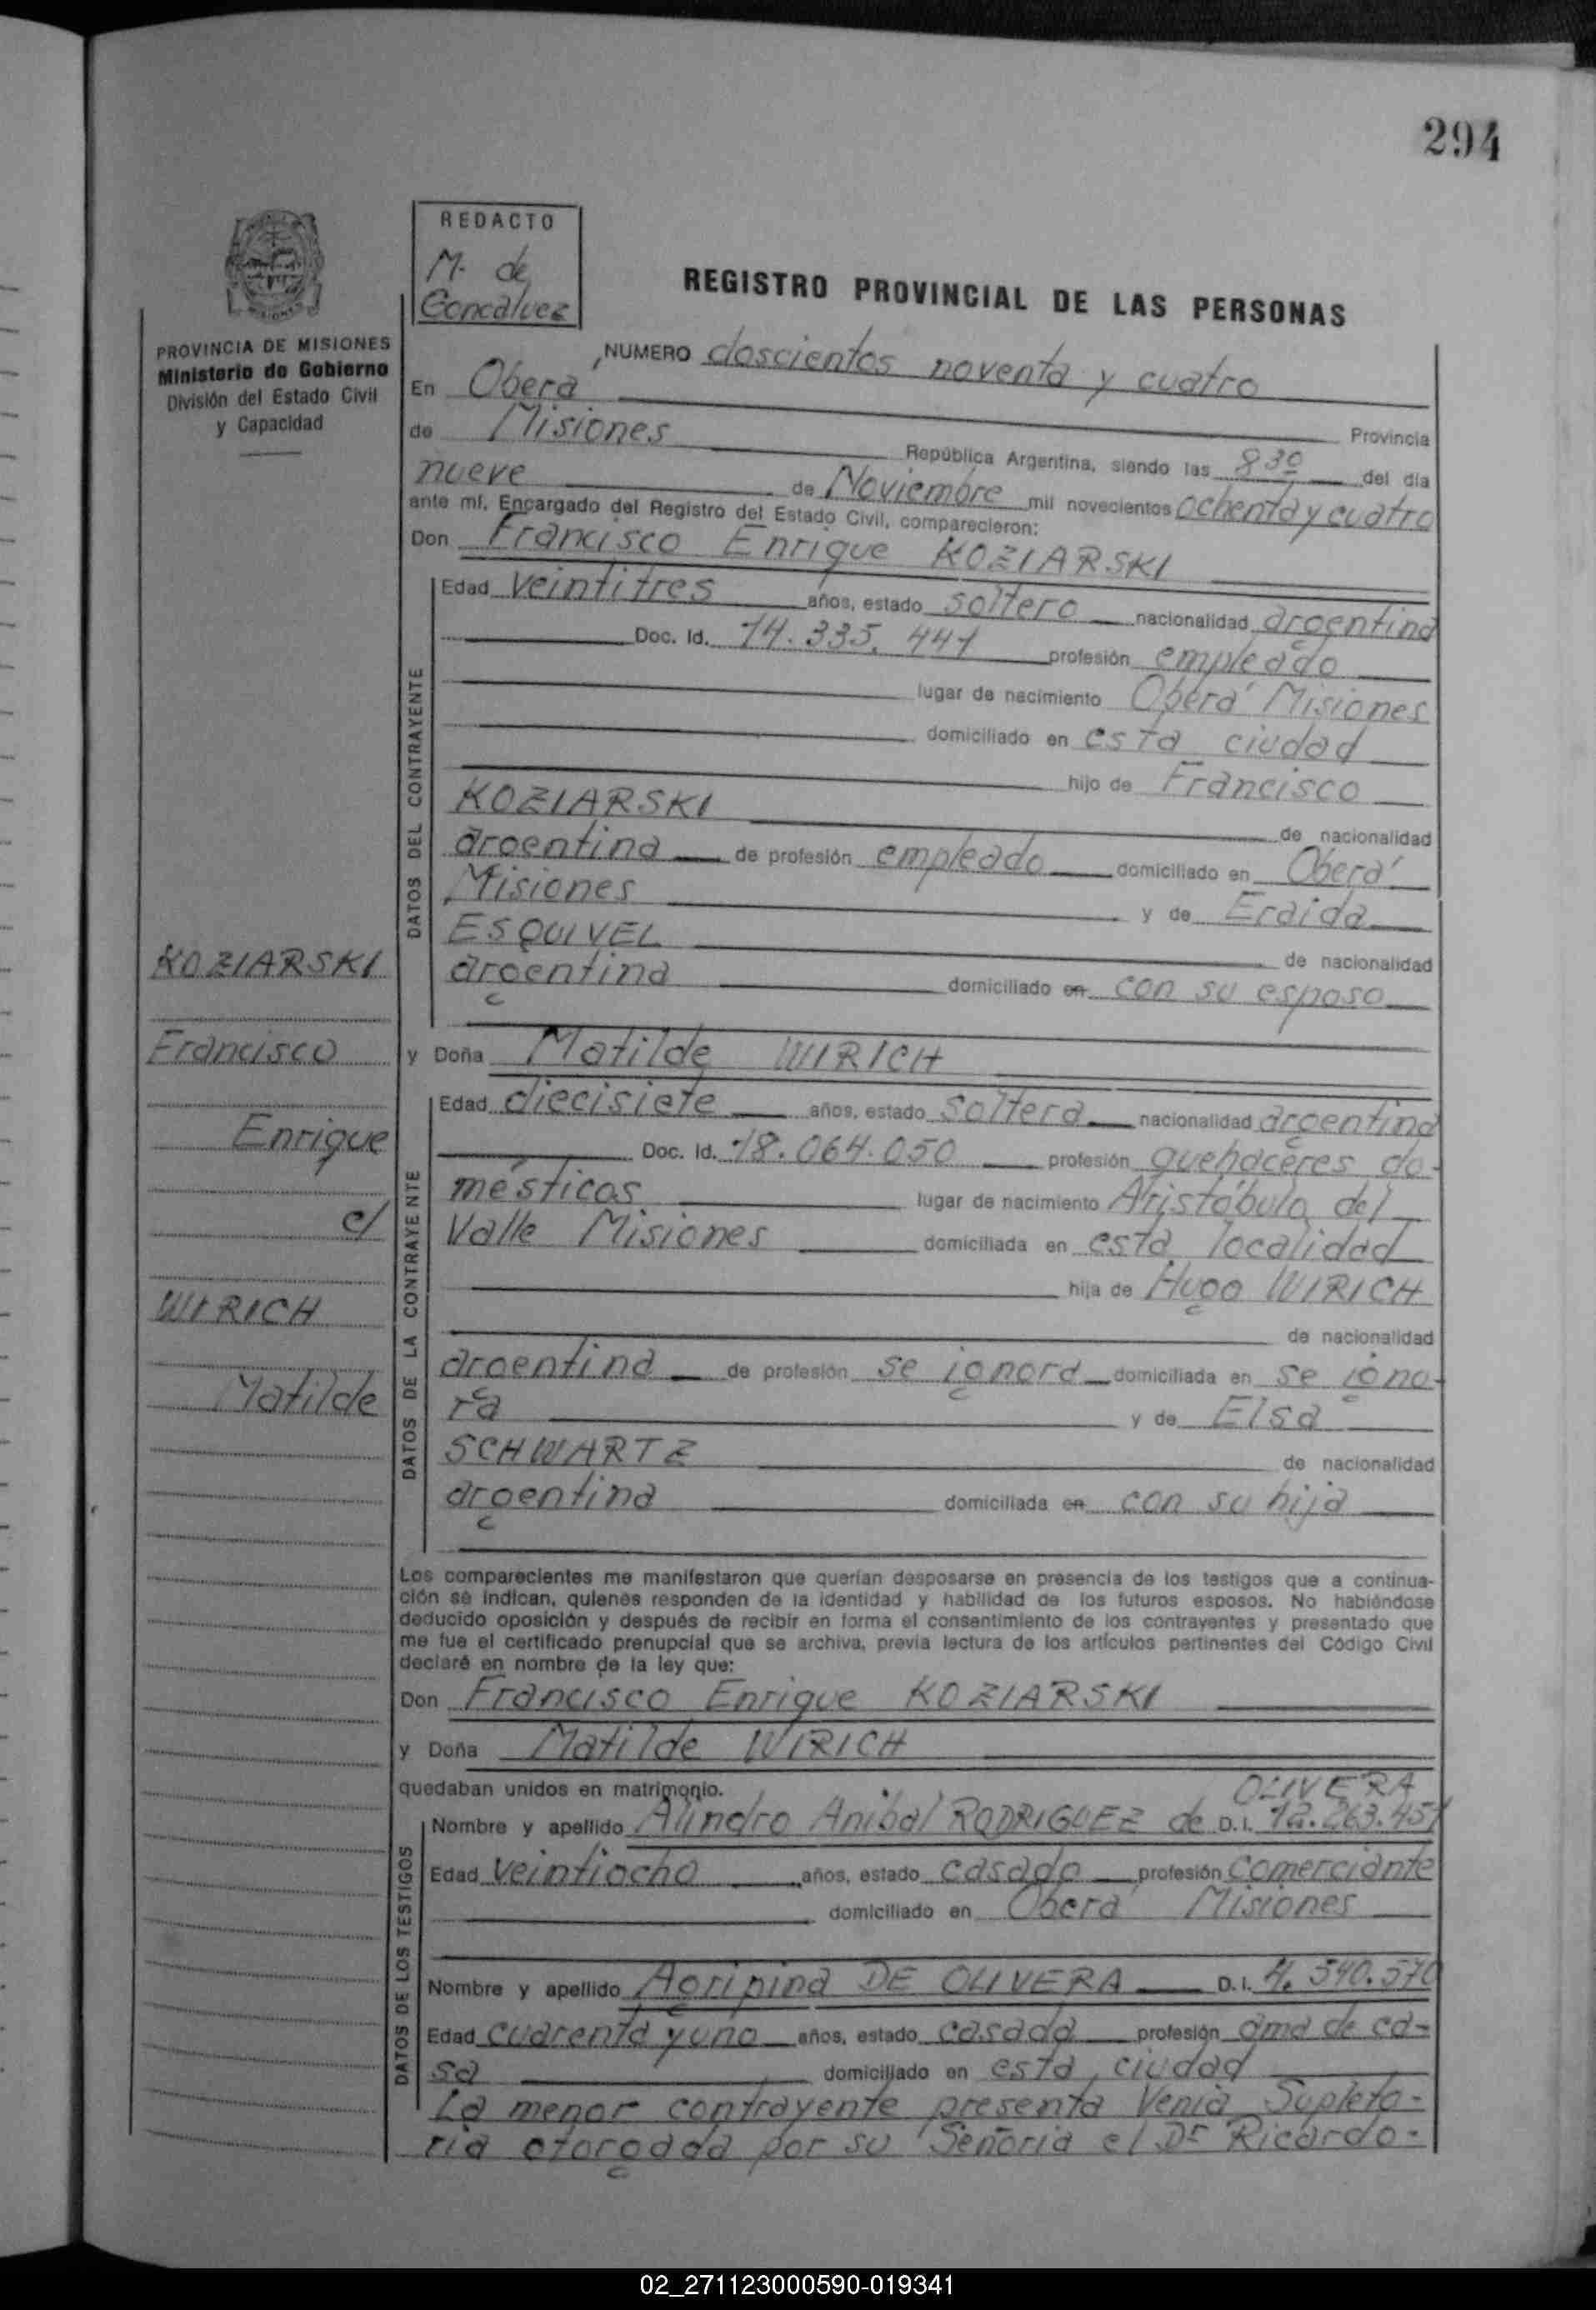 294
REDACTO
M. de
Goncalvez
REGISTRO PROVINCIAL DE LAS PERSONAS
PROVINCIA DE MISIONES
Ministerio de Gobierno
División del Estado Civil
y Capacidad
NUMERO doscientos noventa y cuatro
En Oberá Provincia
de Misiones República Argentina, siendo las 8 30 del día
nueve de Noviembre mil novecientos ochenta y cuatro
ante mí, Encargado del Registro del Estado Civil, comparecieron:
Don Francisco Enrique KOZIARSKI
DATOS DEL CONTRAYENTE
Edad veintitres años, estado soltero nacionalidad argentina
Doc. Id. 14.335.441 profesión empleado
lugar de nacimiento Oberá Misiones
domiciliado en esta ciudad
hijo de Francisco
KOZIARSKI de nacionalidad
argentina de profesión empleado domiciliado en Oberá
Misiones y de Eraida
ESQUIVEL de nacionalidad
argentina domiciliado en con su esposo
KOZIARSKI
Francisco
Enrique
c/
WIRICH
Matilde
y Doña Matilde WIRICH
DATOS DE LA CONTRAYENTE
Edad diecisiete años, estado soltera nacionalidad argentina
Doc. Id. 18.064.050 profesión quehaceres do-
mésticos lugar de nacimiento Aristóbulo del
Valle Misiones domiciliada en esta localidad
hija de Hugo WIRICH
de nacionalidad
argentina de profesión se ignora domiciliada en se igno-
ra y de Elsa
SCHWARTZ de nacionalidad
argentina domiciliada en con su hija
Los comparecientes me manifestaron que querían desposarse en presencia de los testigos que a continua-
ción se indican, quienes responden de la identidad y habilidad de los futuros esposos. No habiéndose
deducido oposición y después de recibir en forma el consentimiento de los contrayentes y presentado que
me fue el certificado prenupcial que se archiva, previa lectura de los artículos pertinentes del Código Civil
declaré en nombre de la ley que:
Don Francisco Enrique KOZIARSKI
y Doña Matilde WIRICH
quedaban unidos en matrimonio.
DATOS DE LOS TESTIGOS
OLIVERA
Nombre y apellido Alindro Anibal RODRIGUEZ de D.I. 12.263.451
Edad veintiocho años, estado casado profesión comerciante
domiciliado en Oberá Misiones
Nombre y apellido Agripina DE OLIVERA D.I. 4.540.570
Edad cuarenta y uno años, estado casada profesión ama de ca-
sa domiciliado en esta ciudad
La menor contrayente presenta Venia Supleto-
ria otorgada por su Señoria el Dr Ricardo-
02_271123000590-019341